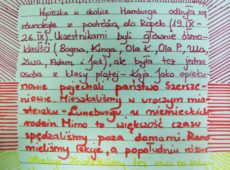 Wycieczka w okolice Hamburga odbyła się
z podróżą do Rapello (19.IX-
26.IX). Uczestnikami byli głównie ósmo-
klasiści (Bogna, Kinga, Ola K, Ola P, Ula,
Adam i Jaś), ale była też jedna
osoba z klasy piątej - Kaja. Jako opieku-
nowie pojechali państwo
Mieszkaliśmy w uroczym mias-
teczku - Lüneburgu, u niemieckich
rodzin. Mimo to większość czasu
spędzaliśmy poza domami. Rano
mieliśmy lekcje, a popołudniu różne